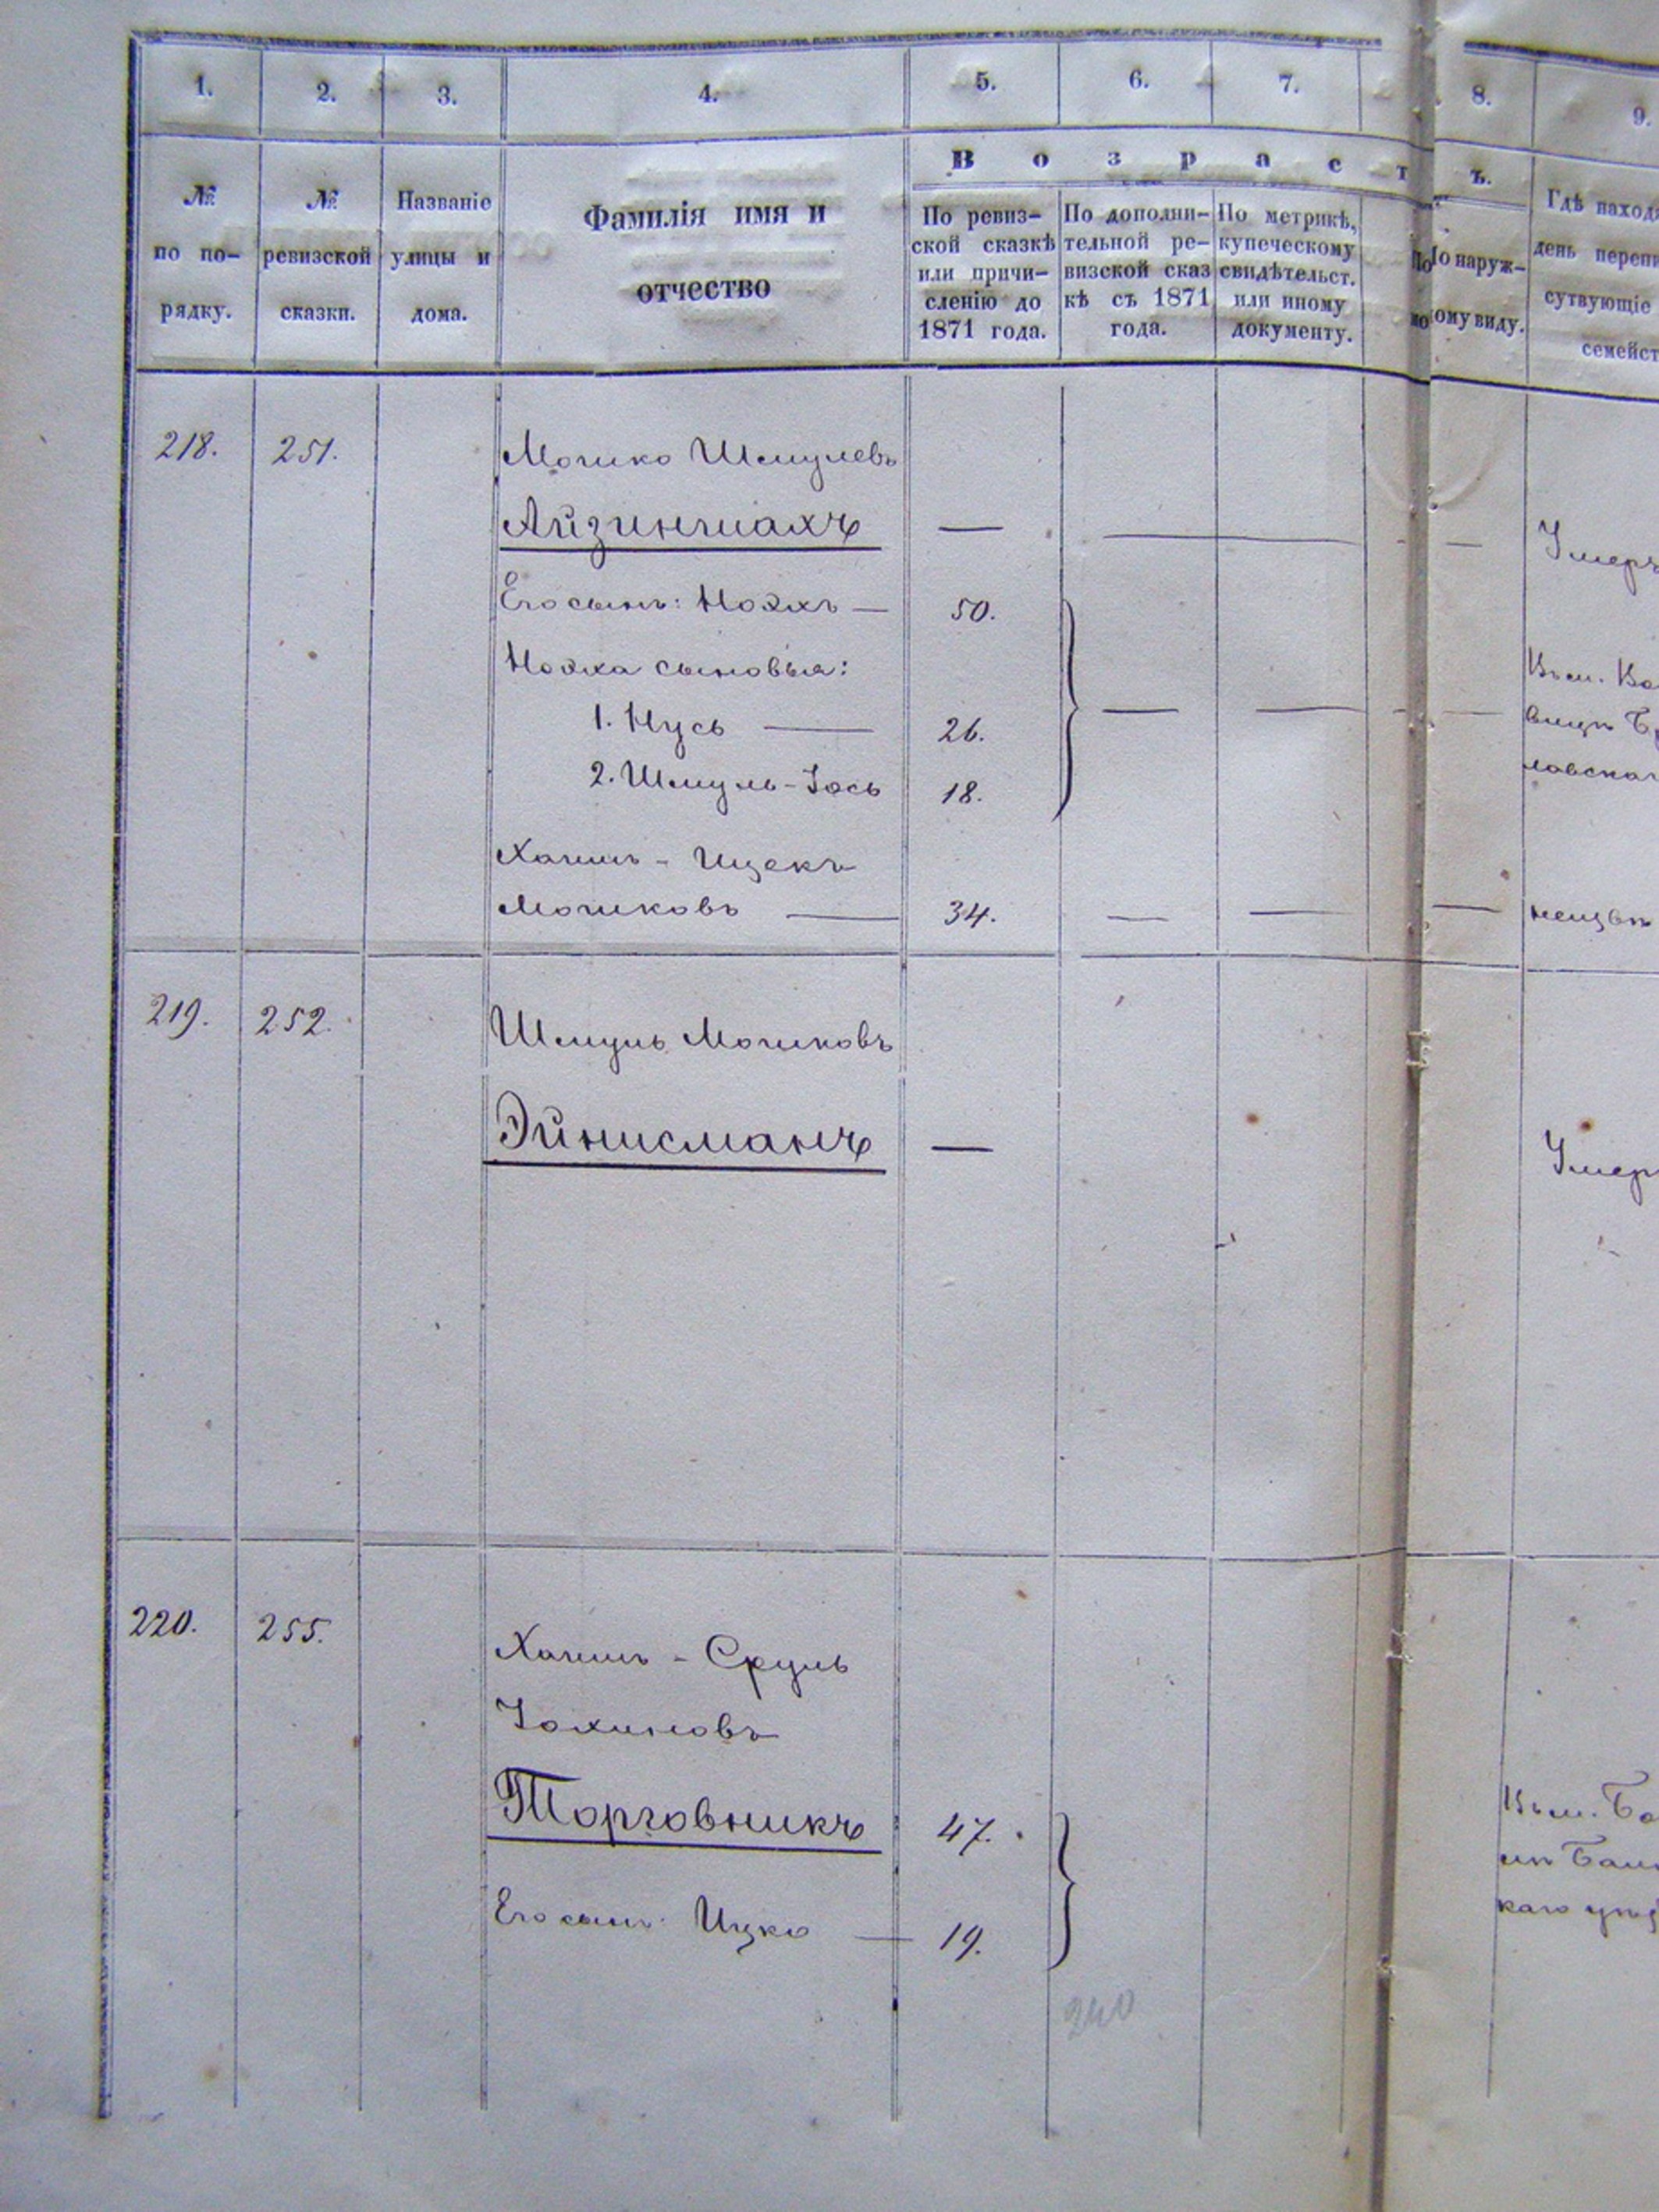 1. 2. 3. 4. 5. 6. 7. 8. 9.
Возрастъ.
№ по порядку.
№ ревизской сказки.
Названіе улицы и дома.
Фамилія имя и отчество
По ревиз-
ской сказкѣ
или причи-
сленію до
1871 года.
По дополни-
тельной ре-
визской сказ
кѣ съ 1871
года.
По метрикѣ,
купеческому
свидѣтельст.
или иному
документу.
По наруж-
ному виду.
Гдѣ наход
день переп
сутвующіе
семейст
218. 251. Мошко Шмулевъ
Айзиншмахъ — — — Умеръ
Его сынъ: Нойхъ — 50.
Нойха сыновья:
1. Нусь — 26. — — —
2. Шмуль-Іось 18.
Хаимъ - Ицекъ
Мошковъ — 34. — — —
219. 252. Шмуль Мошковъ
Эйнисманъ — Умер
220. 255. Хаимъ - Сруль
Іохимовъ
Торговникъ 47.
Его сынъ: Ицко — 19.
240